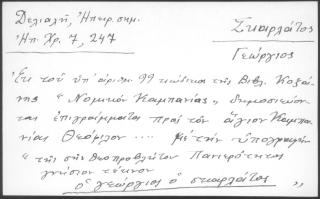 Δελιαλῆ, Ἠπειρ. σημ.
Ἠπ. Χρ. 7, 247
Σκαρλάτος
Γεώργιος
Ἐκ τοῦ ὑπ' ἀριθμ. 99 κώδικος τῆς Βιβλ. Κοζά-
νης "Νομικὸν Καμπανίας" δημοσιεύον-
ται ἐπιγράμματα πρὸς τὸν ἅγιον Καμπα-
νίας Θεόφιλον .... Μὲ τὴν ὑπογραφὴν
"τῆς σῆς θεοπροβλήτου Πανιερότητος
γνήσιον τέκνον
ὁ γεώργιος ὁ σκαρλάτος"